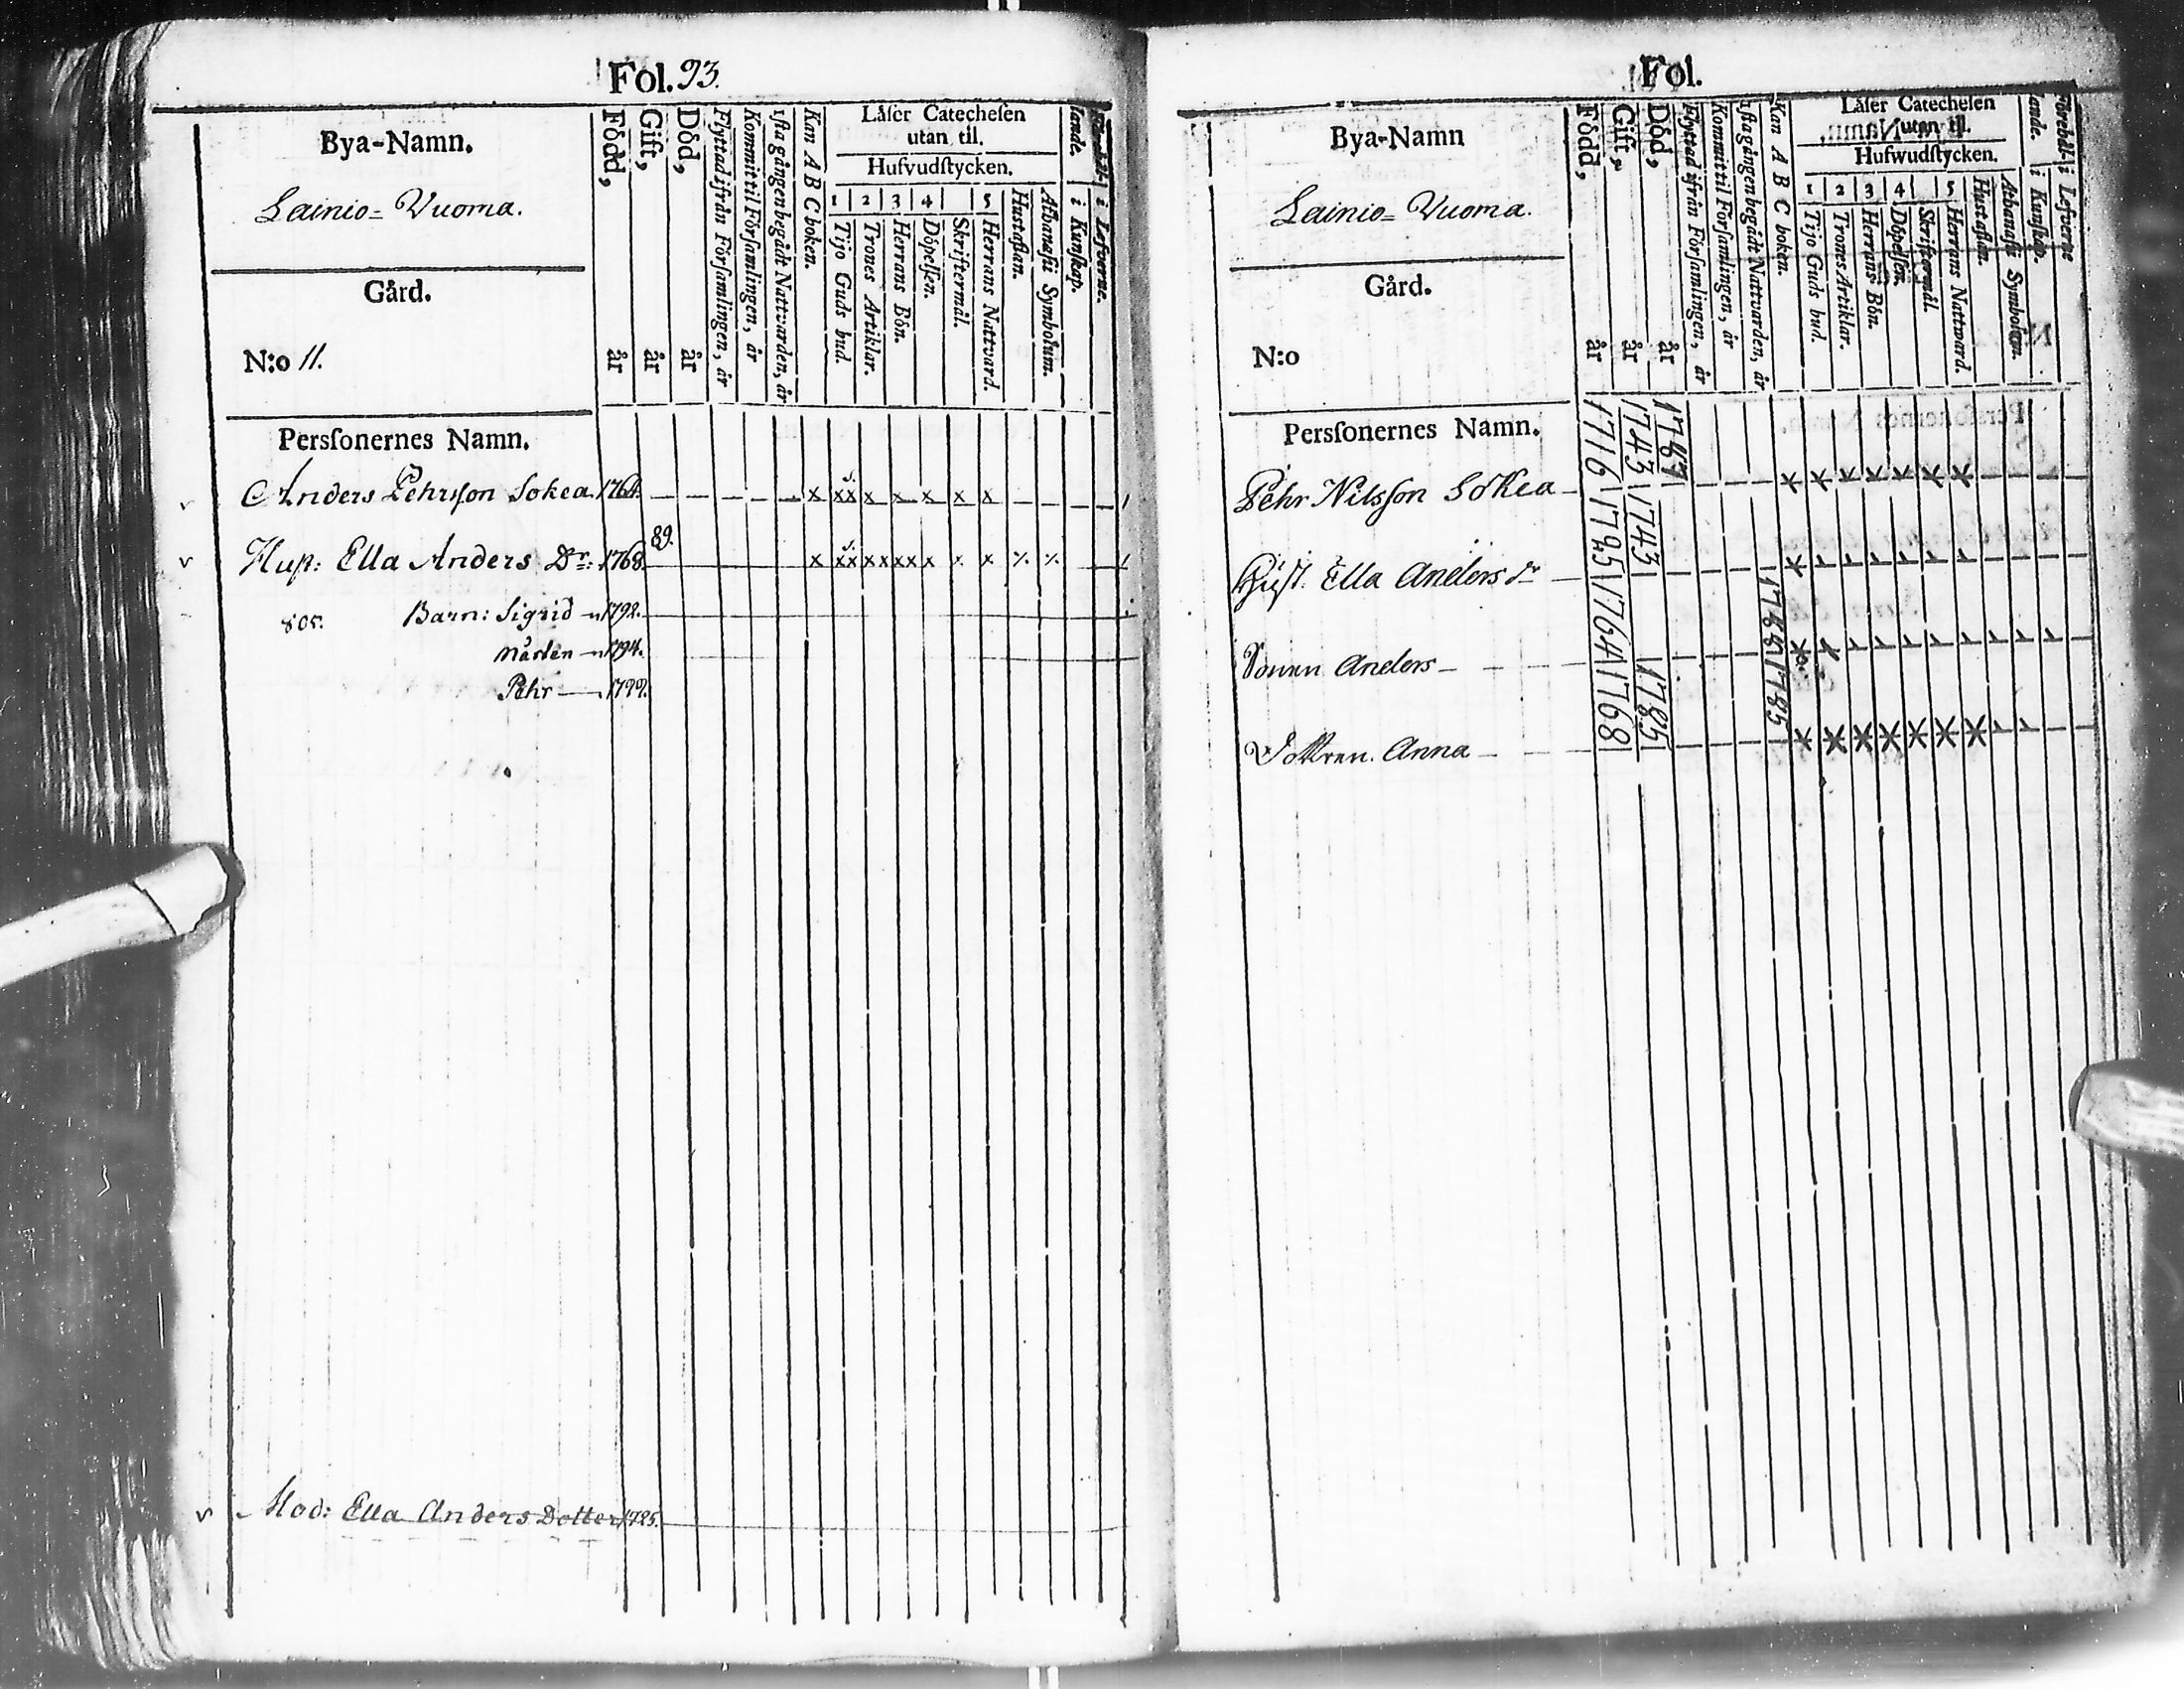 Fol. 93.
Bya-Namn.
Lainio= Vuoma.
Gård.
N:o 11.
Född, år
Gift, år
Död, år
Flyttad ifrån Församlingen, år
Kommit til Församlingen, år
1sta gången begådt Nattvarden, år
Kan A B C boken.
Läser Catechesen
utan til.
Hufvudstycken.
1 2 3 4 5
Tijo Guds bud.
Trones Artiklar.
Herrans Bön.
Döpelsen.
Skriftermål.
Herrans Nattvard.
Hustaflan.
Athanasii Symbolum.
lande. i Kunskap.
i Lefverne.
Perssonernes Namn.
Anders Pehrsson Sokea 1764. x xx x x x x x
89.
Hust: Ella Anders Dr: 1768. x xx xx xx x x x
805. Barn: Sigrid 1792.
Mårten 1794.
Pehr 1799.
Mod: Ella Anders Dotter 1725.
Fol.
Bya-Namn
Lainio= Vuoma.
Gård.
N:o
Född, år
Gift, år
Död, år
Flyttad ifrån Församlingen, år
Kommit til Församlingen, år
1sta gången begådt Nattvarden, år
Kan A B C boken.
Läser Catechesen
utan til.
Hufwudstycken.
1 2 3 4 5
Tijo Guds bud.
Trones Artiklar.
Herrans Bön.
Döpelsen.
Skriftermål.
Herrans Nattvard.
Hustaflan.
Athanasii Symbolum.
Förehållande. i Kunskap.
i Lefverne
Perssonernes Namn.
Pehr Nilsson Sokea 1716 1743 1787
Hust. Ella Anders dr 1743
Sonen Anders 1764 1788
Dottren Anna 1768 1785 1785